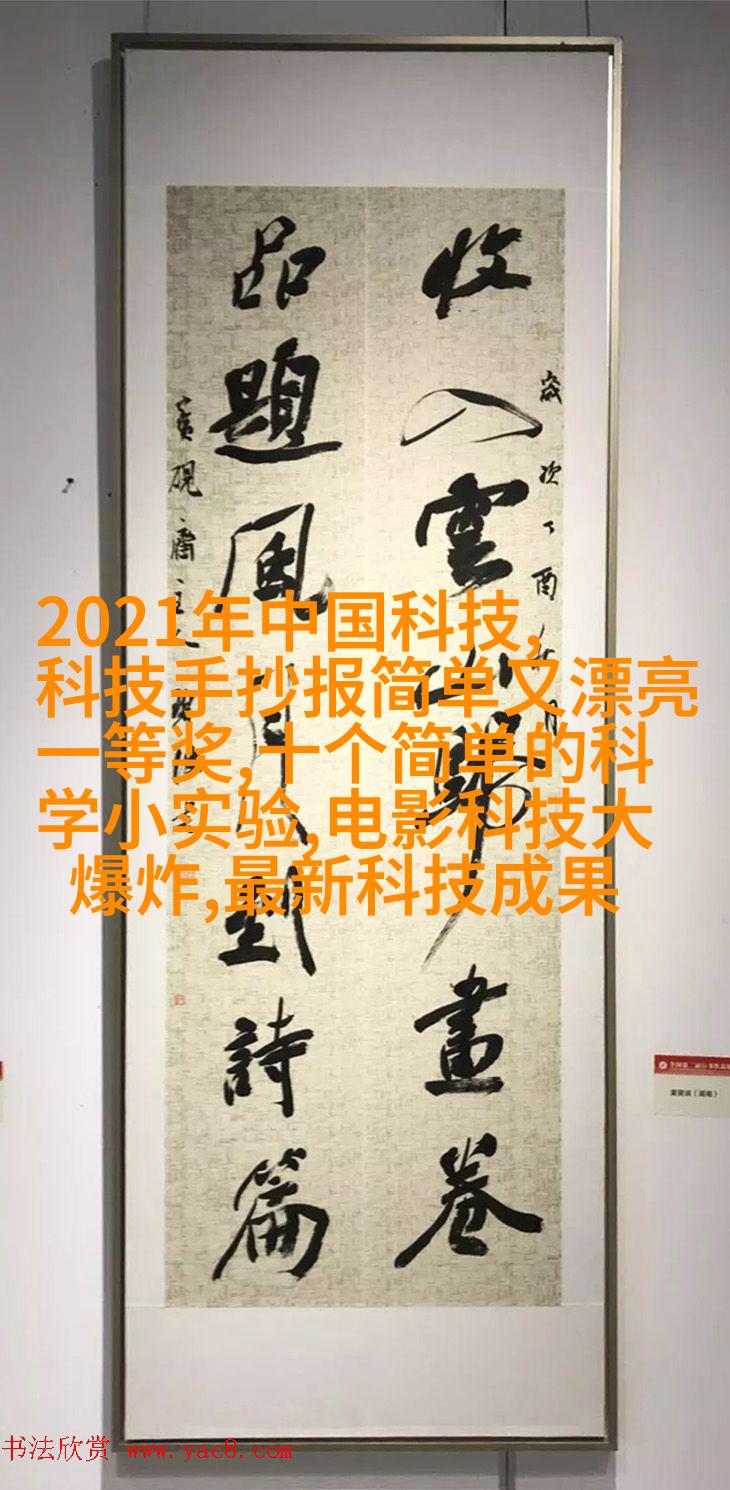 收入雲山歸畫卷
歲次丁酉
品題風月到詩篇
2021年中国科技,
科技手抄报简单又漂亮
一等奖,十个简单的科
学小实验,电影科技大
爆炸,最新科技成果
(湖南)
书法欣赏 www.yac8.com